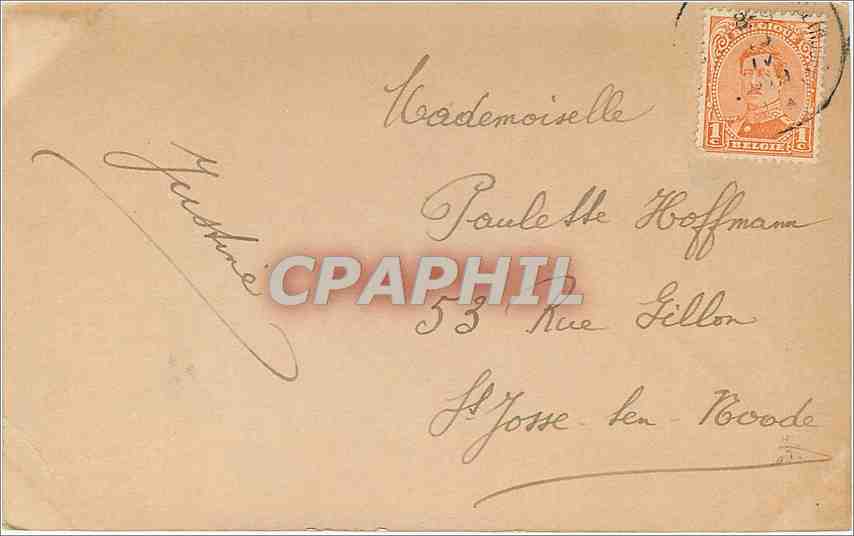 Mademoiselle
Paulette Hoffmann
53 Rue Gillon
St Josse-ten-Noode
Justine
CPAPHIL
BELGIQUE
1c 1c
BELGIË